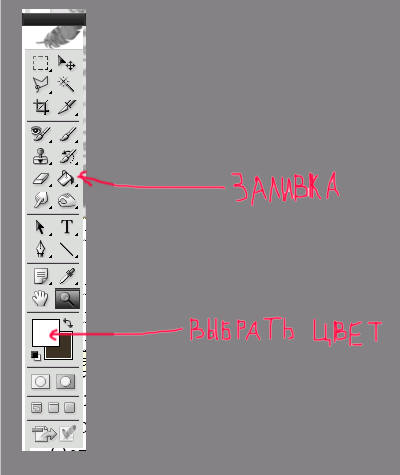 T
ЗАЛИВКА
ВЫБРАТЬ ЦВЕТ